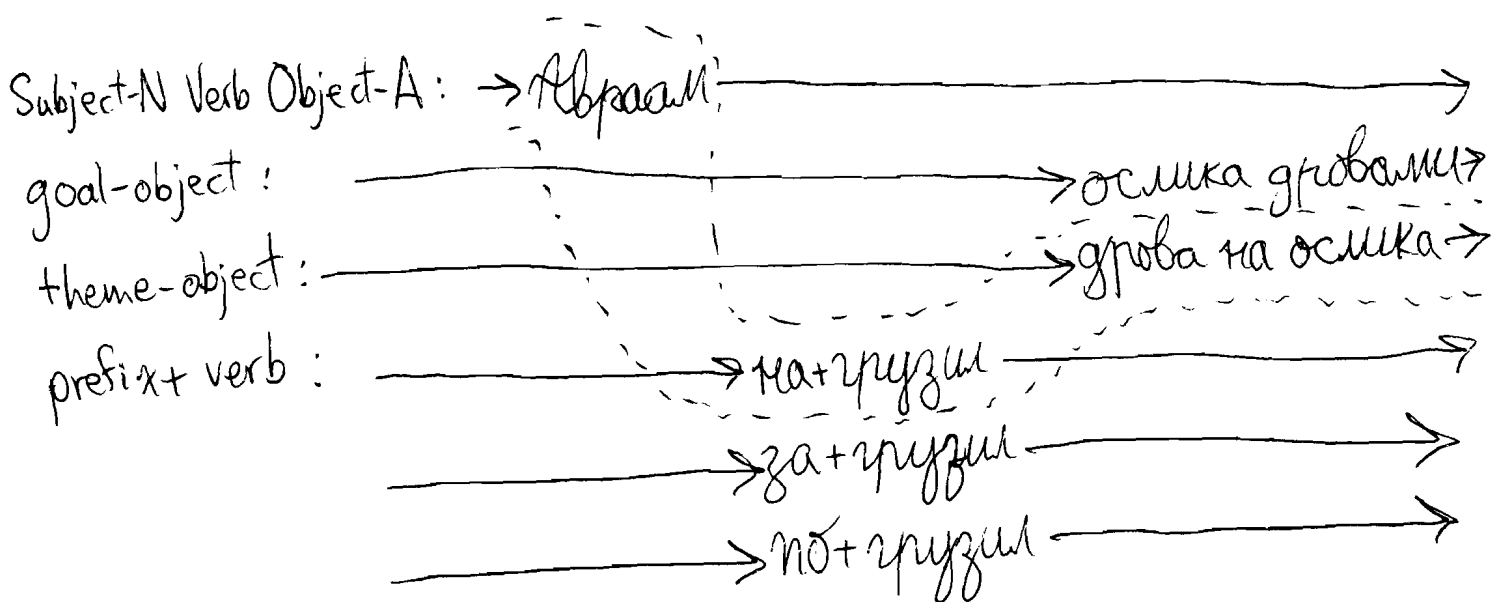 Subject-N Verb Object-A: → Авраам →
goal-object: → ослика дровами →
theme-object: → дрова на ослика →
prefix+ verb: → на+грузил →
→ за+грузил →
→ по+грузил →